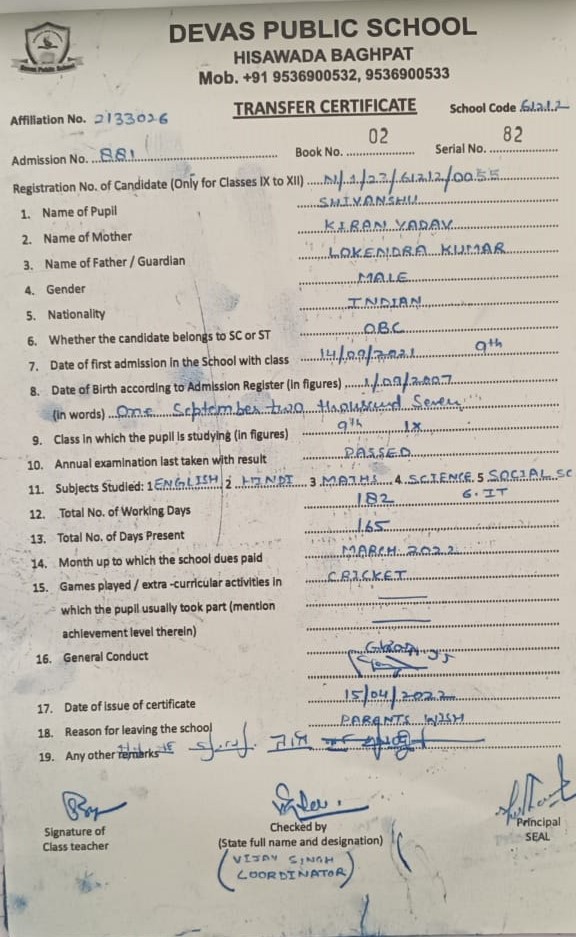 Devas Public School
DEVAS PUBLIC SCHOOL
HISAWADA BAGHPAT
Mob. +91 9536900532, 9536900533
TRANSFER CERTIFICATE
Affiliation No. 2133026 School Code 61212
Admission No. 881 Book No. 02 Serial No. 82
Registration No. of Candidate (Only for Classes IX to XII) N/1/27/61212/0055
1. Name of Pupil SHIVANSHU
2. Name of Mother KIRAN YADAV
3. Name of Father / Guardian LOKENDRA KUMAR
4. Gender MALE
5. Nationality INDIAN
6. Whether the candidate belongs to SC or ST OBC
7. Date of first admission in the School with class 14/09/2021 9th
8. Date of Birth according to Admission Register (in figures) 1/09/2007
(in words) One September two thousand Seven
9. Class in which the pupil is studying (in figures) 9th IX
10. Annual examination last taken with result PASSED
11. Subjects Studied: 1 ENGLISH 2 HINDI 3 MATHS 4 SCIENCE 5 SOCIAL SC
6. IT
12. Total No. of Working Days 182
13. Total No. of Days Present 165
14. Month up to which the school dues paid MARCH 2022
15. Games played / extra -curricular activities in CRICKET
which the pupil usually took part (mention
achievement level therein)
16. General Conduct GOOD
17. Date of issue of certificate 15/04/2022
18. Reason for leaving the school PARANTS WISH
19. Any other remarks
Signature of
Class teacher
Checked by
(State full name and designation)
(VIJAY SINGH
COORDINATOR)
Principal
SEAL